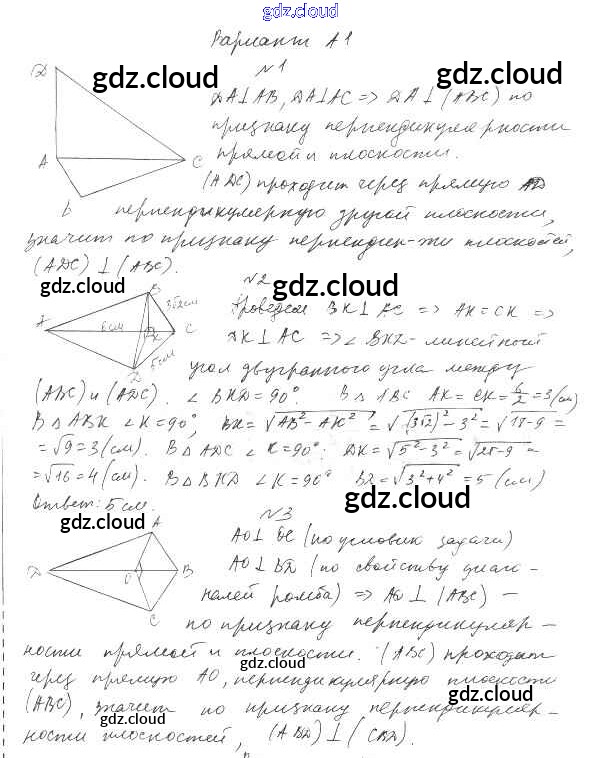 gdz.cloud
Вариант А1
№1
DA⊥AB, DA⊥AC => DA⊥(ABC) по
признаку перпендикулярности
прямой и плоскости.
(ADC) проходит через прямую AD
перпендикулярную другой плоскости,
значит по признаку перпендик-ти плоскостей,
(ADC) ⊥ (ABC).
D
A
C
b
gdz.cloud
gdz.cloud
gdz.cloud
№2
Проведем BK⊥AC => AK=CK =>
DK⊥AC => ∠BKD - линейный
угол двугранного угла между
(ABC) и (ADC). ∠BKD=90°. В ΔABC AK=CK=6/2=3(см)
В ΔABK ∠K=90°, BK=√AB²-AK²=√(3√2)²-3²=√18-9=
=√9=3(см). В ΔADC ∠K=90°: DK=√5²-3²=√25-9=
=√16=4(см). В ΔBKD ∠K=90° BD=√3²+4²=5(см)
Ответ: 5 см.
B
3√2см
A
6см
K
C
5см
D
gdz.cloud
gdz.cloud
gdz.cloud
gdz.cloud
№3
AO⊥OC (по условию задачи)
AO⊥BD (по свойству диаго-
налей ромба) => AO⊥(ABC) -
по признаку перпендикуляр-
ности прямой и плоскости. (ABC) проходит
через прямую AO, перпендикулярную плоскости
(ABC), значит по признаку перпендикуляр-
ности плоскостей, (ABD)⊥(CBD).
A
D
O
B
C
gdz.cloud
gdz.cloud
gdz.cloud
gdz.cloud
gdz.cloud
gdz.cloud